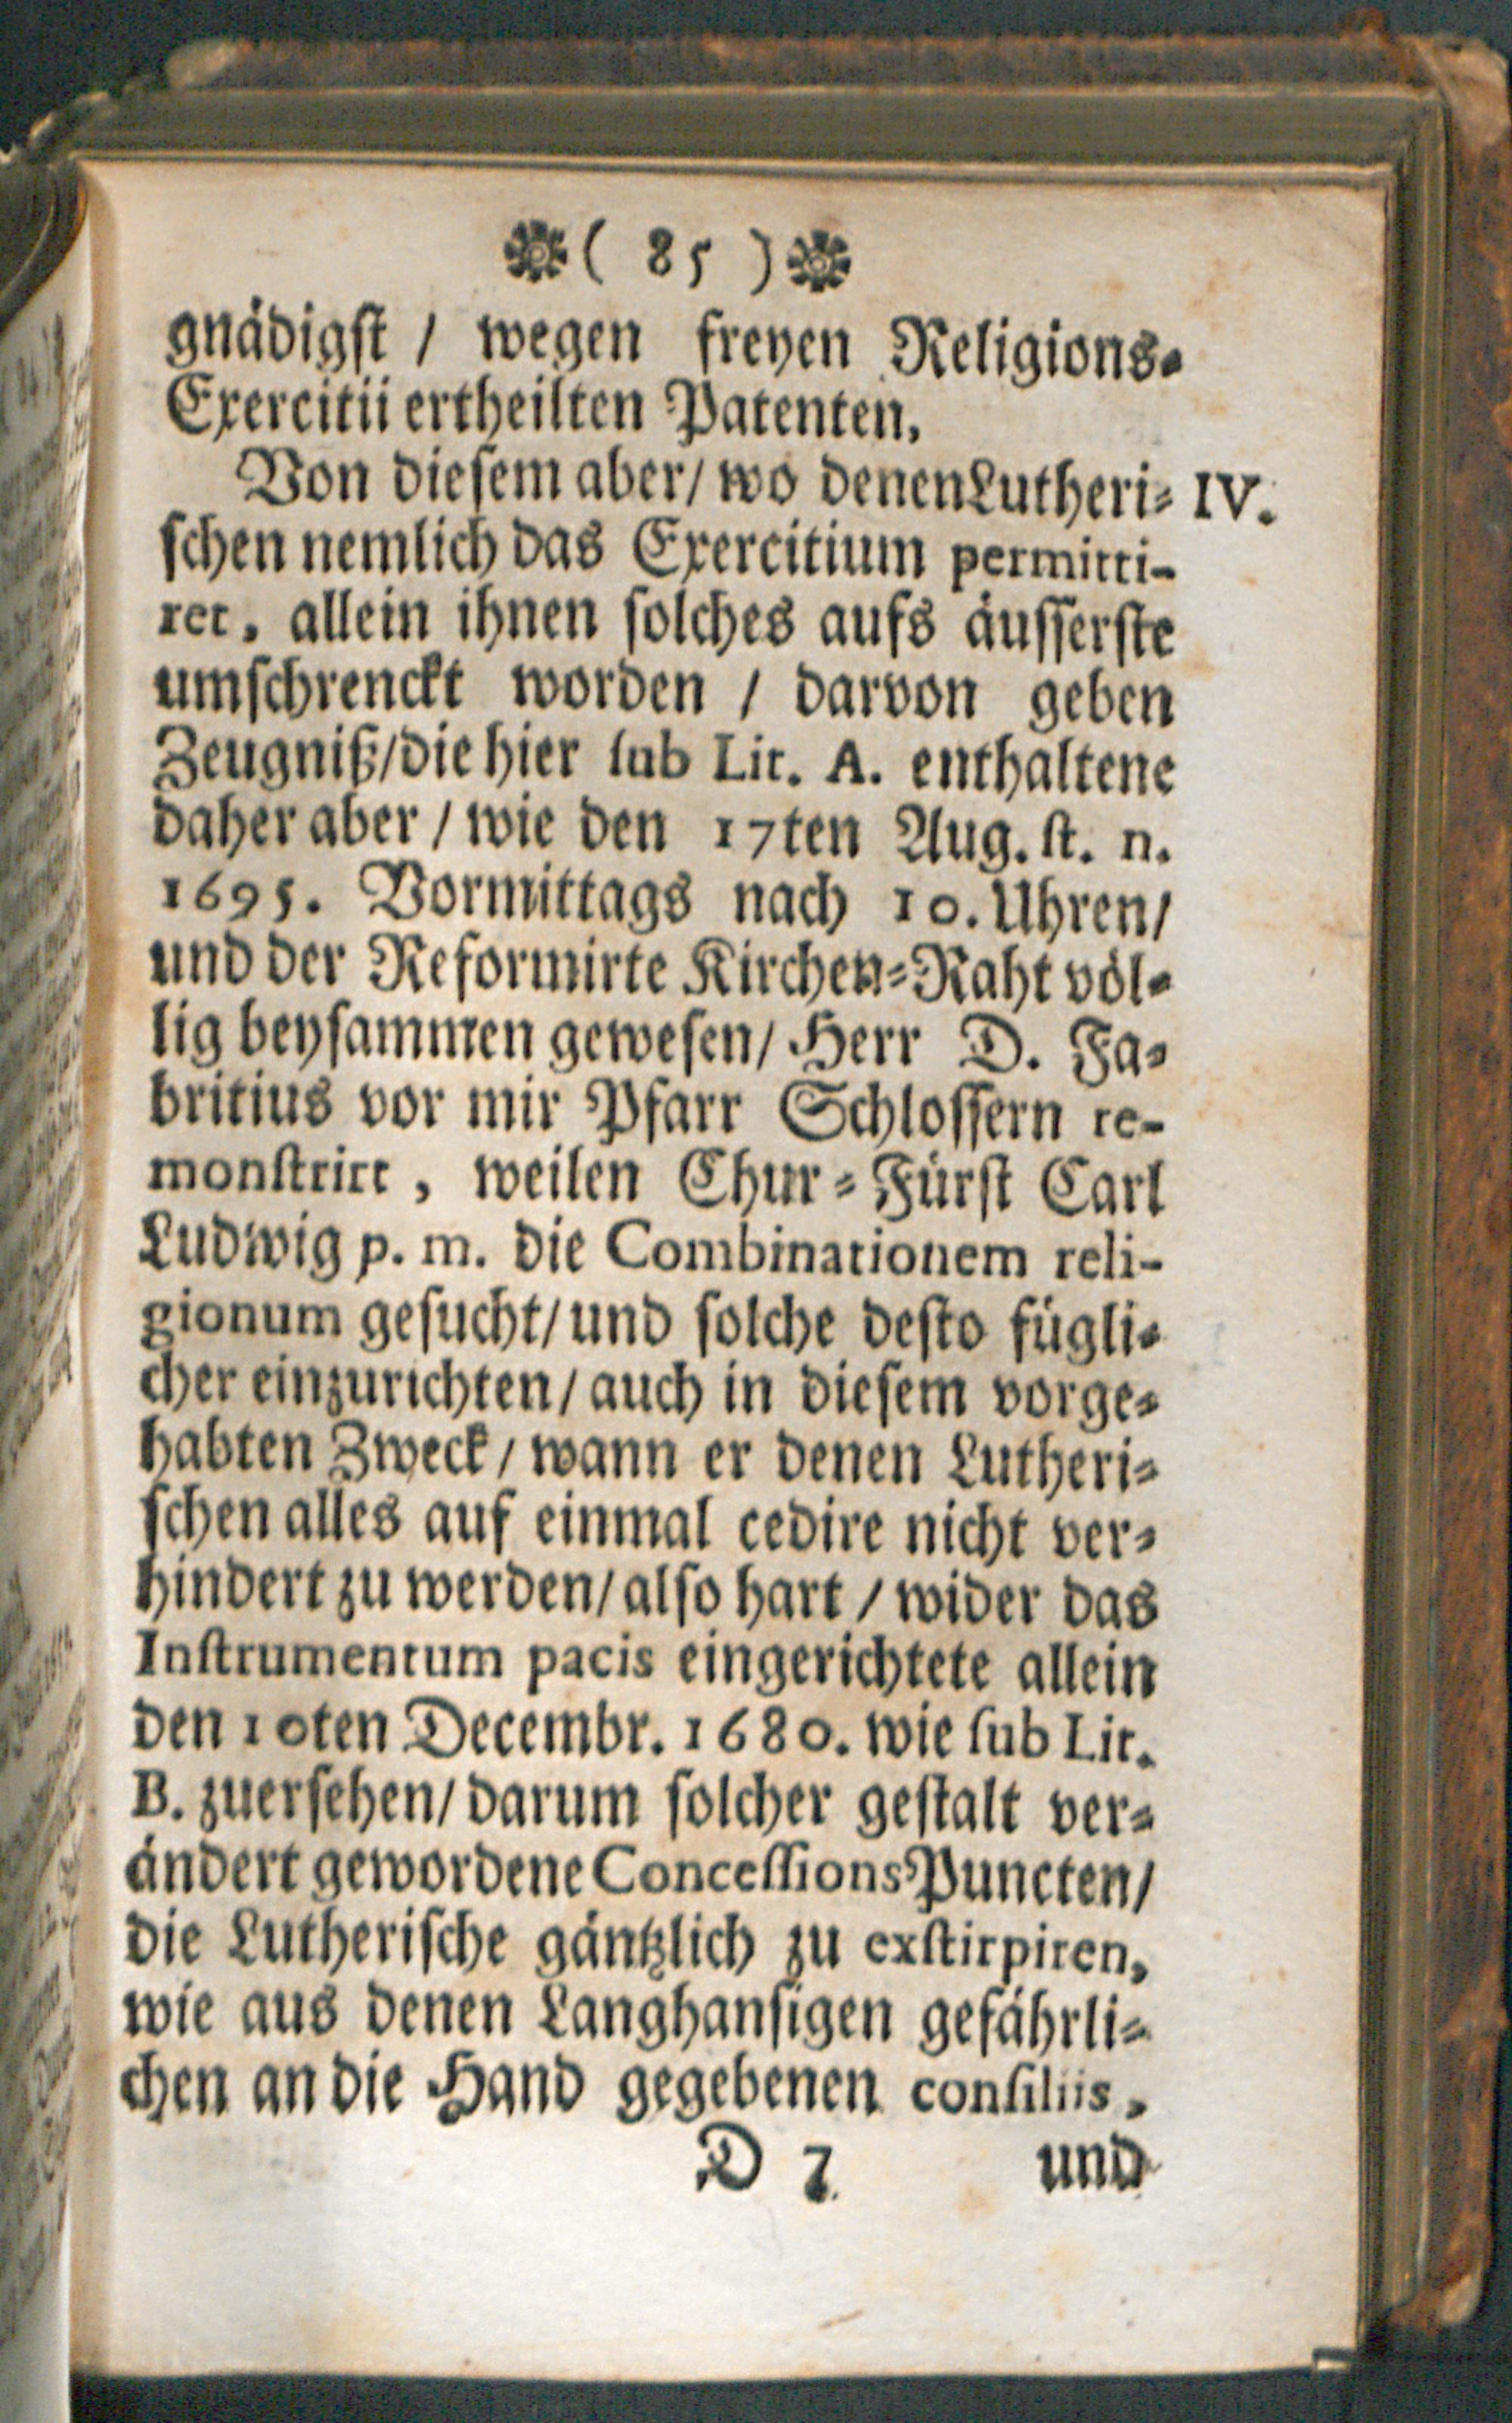 ( 85 )
gnädigst / wegen freyen Religions-
Exercitii ertheilten Patenten.
Von diesem aber/ wo denen Lutheri- IV.
schen nemlich das Exercitium permitti-
ret, allein ihnen solches aufs äusserste
umschrenckt worden / darvon geben
Zeugniß/die hier sub Lit. A. enthaltene
daher aber / wie den 17ten Aug. st. n.
1695. Vormittags nach 10. Uhren/
und der Reformirte Kirchen-Raht völ-
lig beysammen gewesen/ Herr D. Fa-
britius vor mir Pfarr Schlossern re-
monstrirt, weilen Chur-Fürst Carl
Ludwig p. m. die Combinationem reli-
gionum gesucht/und solche desto fügli-
cher einzurichten/ auch in diesem vorge-
habten Zweck/ wann er denen Lutheri-
schen alles auf einmal cedire nicht ver-
hindert zu werden/also hart / wider das
Instrumentum pacis eingerichtete allein
den 10ten Decembr. 1680. wie sub Lit.
B. zuersehen/ darum solcher gestalt ver-
ändert gewordene Concessions Puncten/
die Lutherische gäntzlich zu exstirpiren,
wie aus denen Langhansigen gefährli-
chen an die Hand gegebenen consiliis,
D 7 und